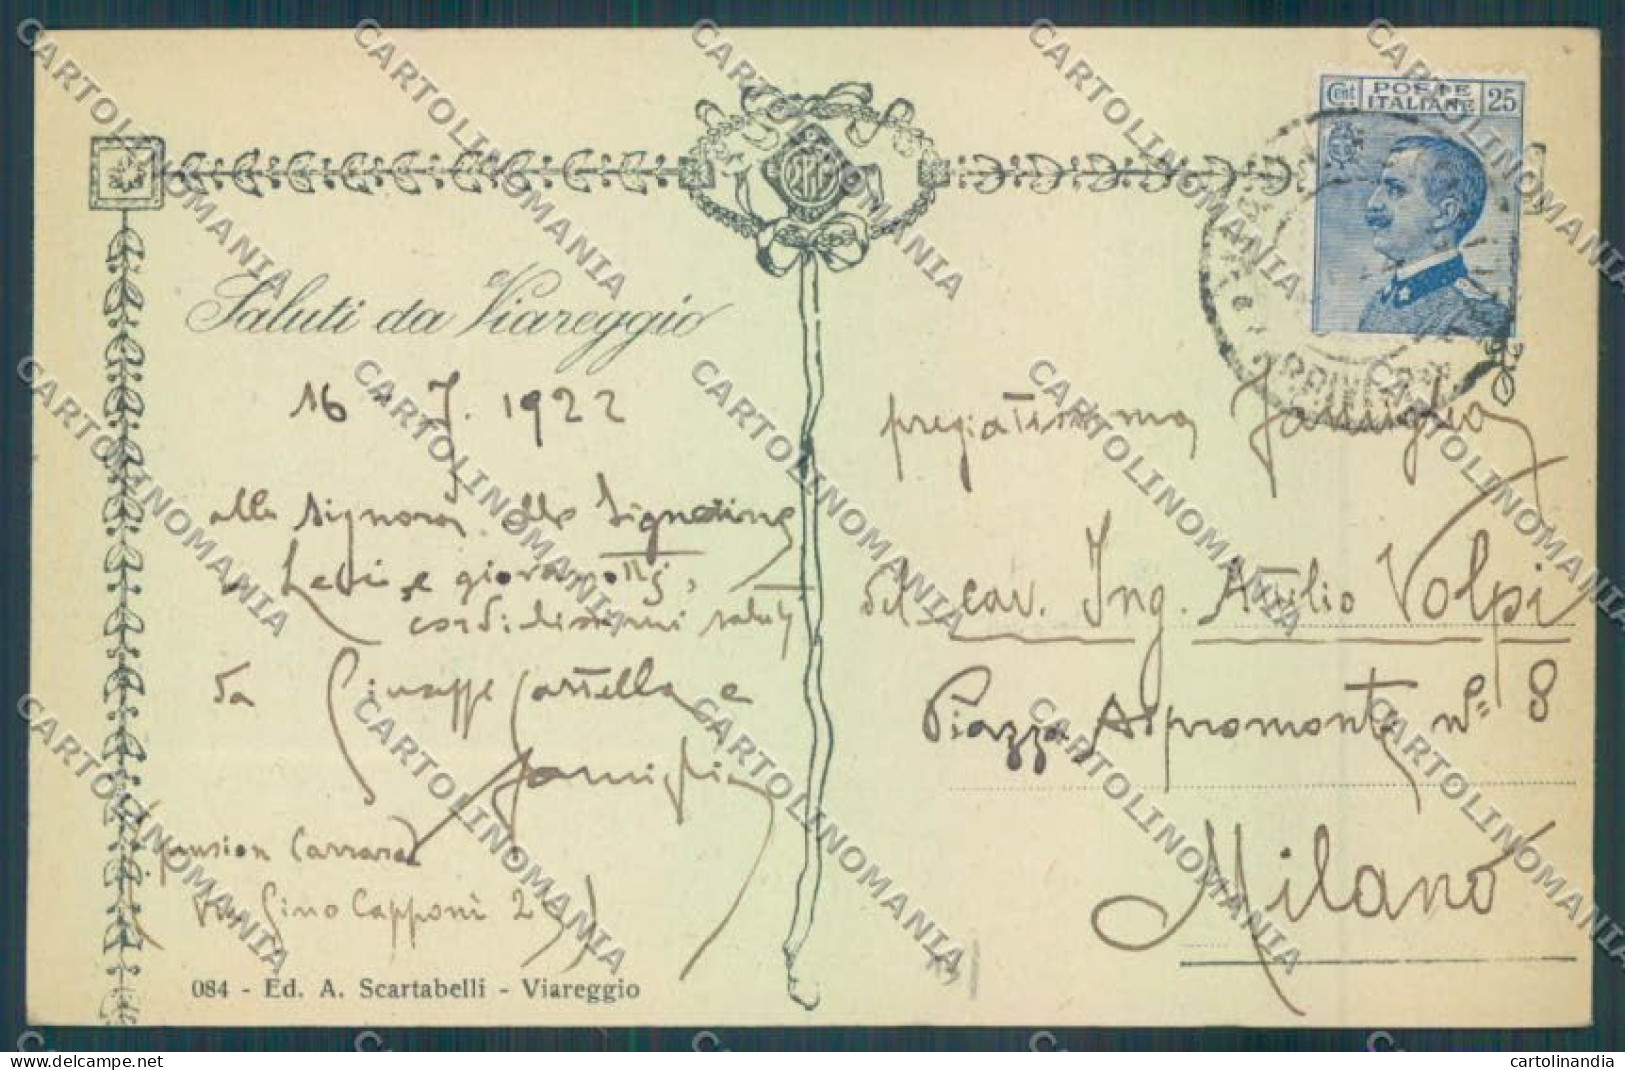 Cent. POSTE ITALIANE 25
Saluti da Viareggio
16 - 7. 1922
alla Signora, alle Signorine
Levi, e giovanotti,
cordialissimi saluti
da Giuseppe Castella e
famiglia
(pension Carrara
Via Gino Capponi 2
084 - Ed. A. Scartabelli - Viareggio
pregiatissima famiglia
del cav. Ing. Attilio Volpi
Piazza Aspromonte n° 8
Milano
CARTOLINOMANIA
cartolinomania.delcampe.net
cartolinandia